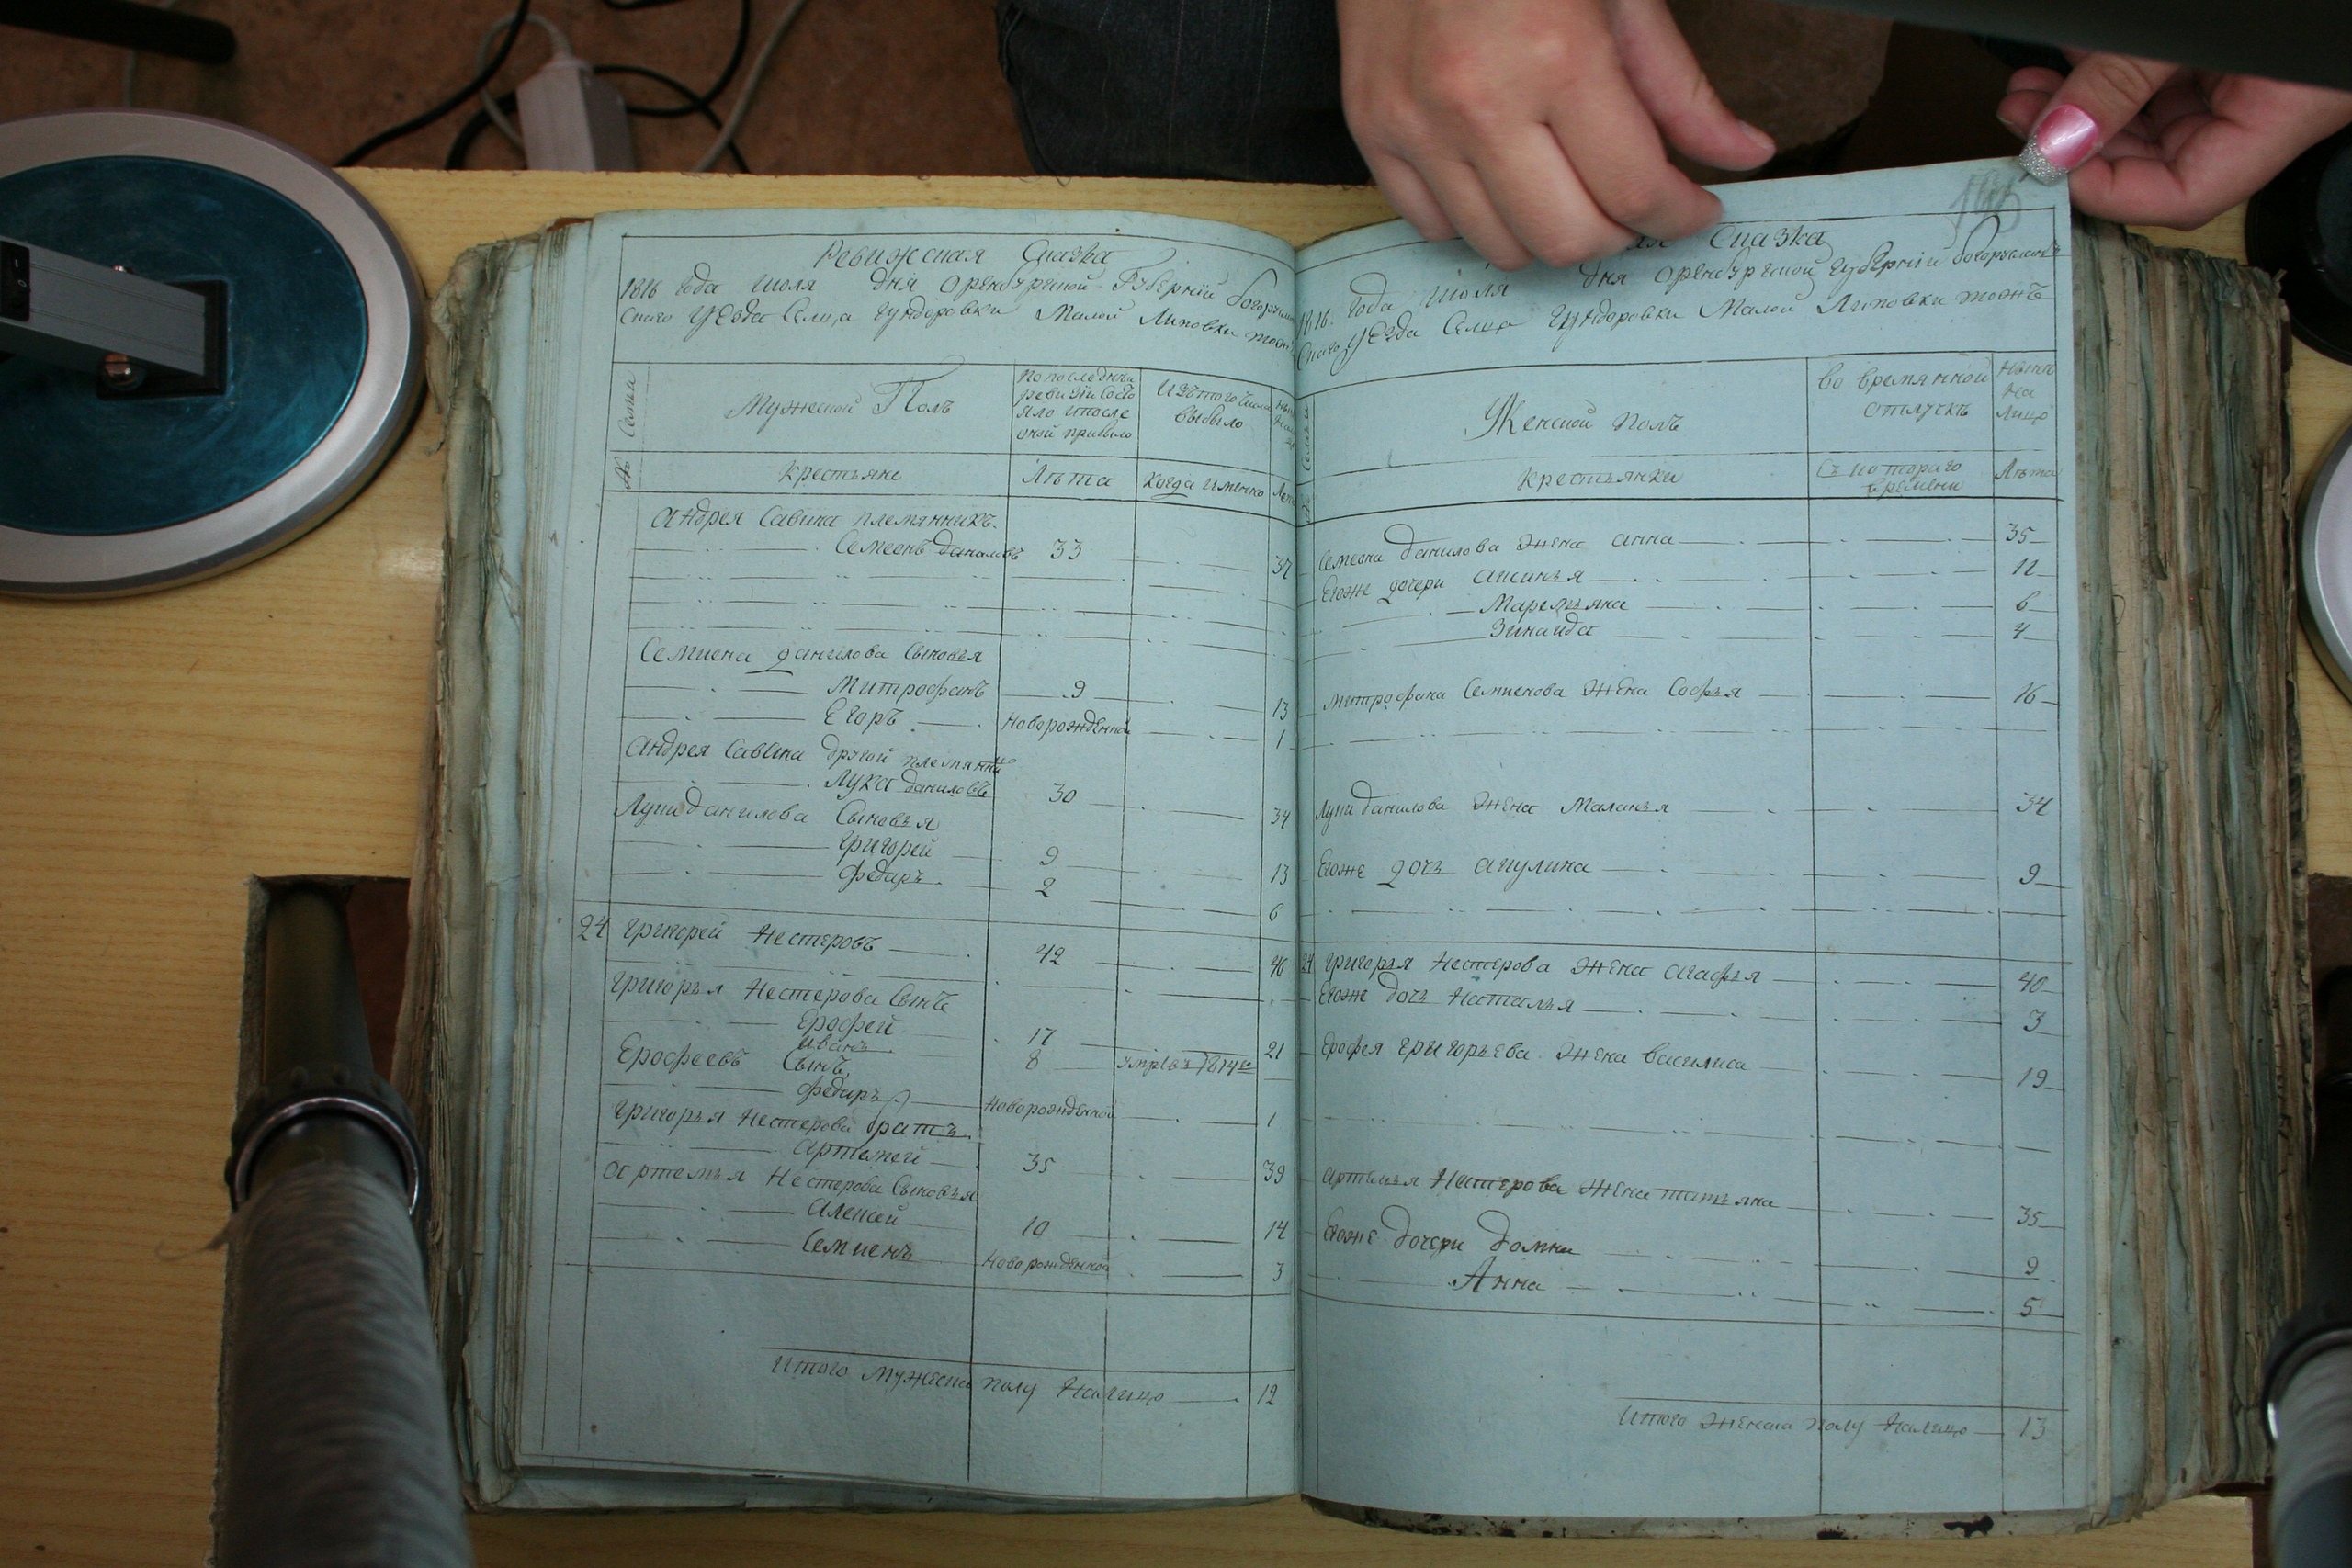 Ревижская Сказка
1816 года Июля дня Оренбургской Губернии Богоруслан
скаго уезда Селца Гундоровки Малой Липовки тожъ
№ Семьи
Мужеской Полъ
По последней ревизии состояло и после оной прибыло
Изъ того числа выбыло
Крестьяне
Лѣта
Когда имянно
Лета
Андрея Савина племянникъ
Семенъ Даниловъ 33 37
Семиона Данилова Сыновья
Митрофанъ 9 13
Егоръ Новорожденной 1
Андрея Савина другой племянни
Лука Даниловъ 30 34
Луки Данилова Сыновья
Григорей 9 13
Федаръ 2 6
24 Григорей Нестеровъ 42 46
Григорья Нестерова Сынъ
Ерофей 17 21
Иванъ 8 умре въ 1814мъ
Ерофеевъ Сынъ
Федаръ Новорожденной 1
Григорья Нестерова братъ
Артемей 35 39
Артемья Нестерова Сыновья
Алексей 10 14
Семионъ Новорожденной 3
Итого мужеска полу налицо 12
Сказка
1816. года Июля дня Оренбургской Губернии Богоруслан
скаго уезда Селца Гундоровки Малой Липовки тожъ
Женской полъ
во времянной отлучкѣ
Нынѣ на лицо
Крестьянки
Съ котораго времени
Лѣта
Семиона Данилова жена Анна 35
Егоже дочери Аксинья 11
Маремьяна 6
Зинаида 4
Митрофана Семионова жена Софья 16
Луки Данилова жена Маланья 34
Егоже дочь Акулина 9
24 Григорья Нестерова жена Агафья 40
Егоже дочь Наталья 3
Ерофея Григорьева жена Василиса 19
Артемья Нестерова жена Татьяна 35
Егоже дочери Домна 9
Анна 5
Итого женска полу налицо 13